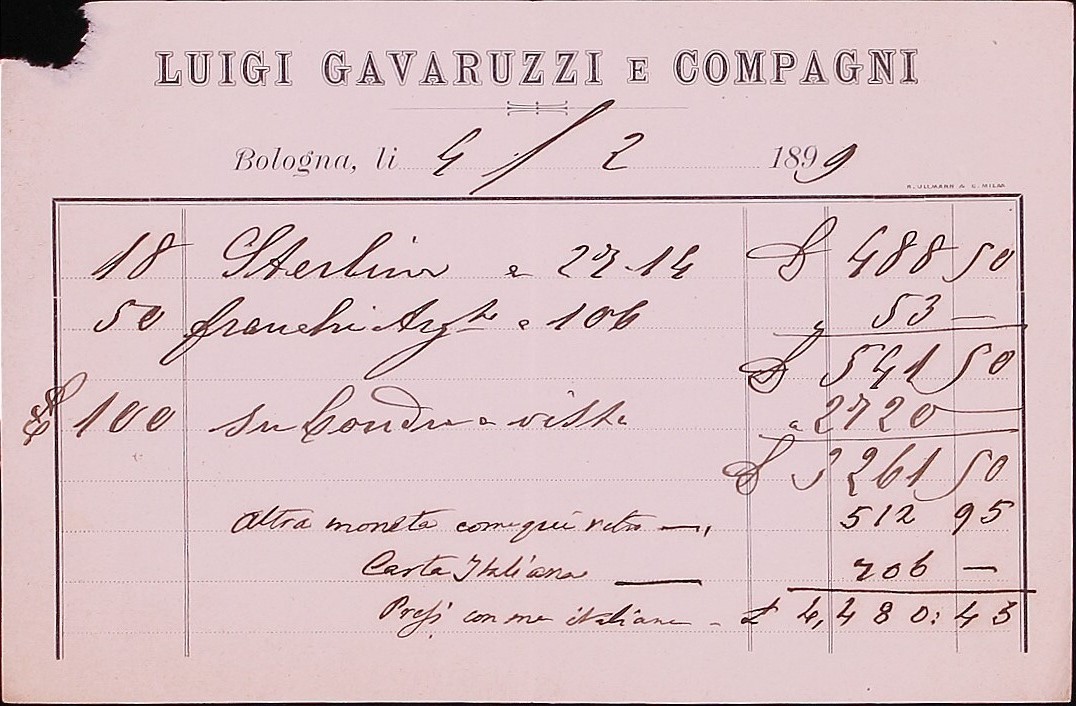 LUIGI GAVARUZZI E COMPAGNI
Bologna, li 4 / 2 1899
A. ULLMANN & C. MILAN
18 Sterline a 27.14 £ 488 50
50 franchi Argto a 106 " 53 —
£ 541 50
£ 100 su Londra a vista a 2720 —
£ 3261 50
Altra moneta come qui retro — " 512 95
Carta Italiana — 706 —
Presi con me italiane - £ 4,480:45